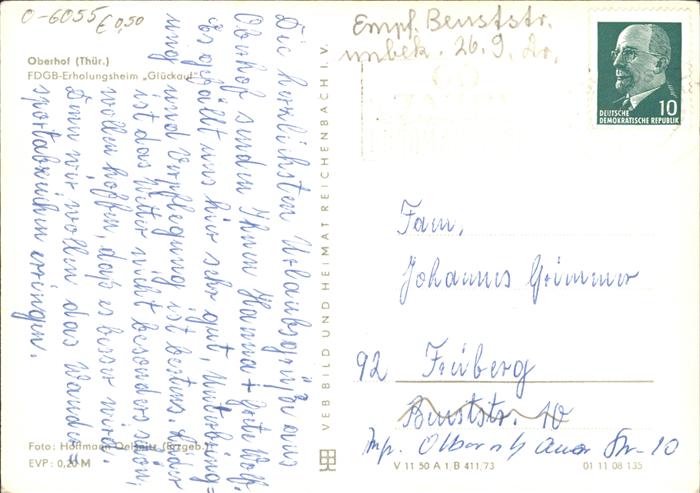 0-6055
€ 0,50
Oberhof (Thür.)
FDGB-Erholungsheim „Glückauf"
Die herzlichsten Urlaubsgrüße aus
Oberhof senden Ihnen Hanna + Grete Wolf.
Es gefällt uns hier sehr gut, Unterbring=
ung und Verpflegung ist bestens. Leider
ist das Wetter nicht besonders schön,
wollen hoffen, daß es besser wird.
Denn wir wollen das Wander=
sportabzeichen erringen.
Foto: Hoffmann Oelsnitz (Erzgeb.)
EVP: 0,20 M
VEB BILD UND HEIMAT REICHENBACH I. V.
Empf. Beuststr.
unbek. 26.9.
DEUTSCHE
DEMOKRATISCHE REPUBLIK
10
Fam.
Johannes Grimmer
92 Freiberg
Beuststr. 10
Str. 10
V 11 50 A 1 B 411,73
01 11 08 135